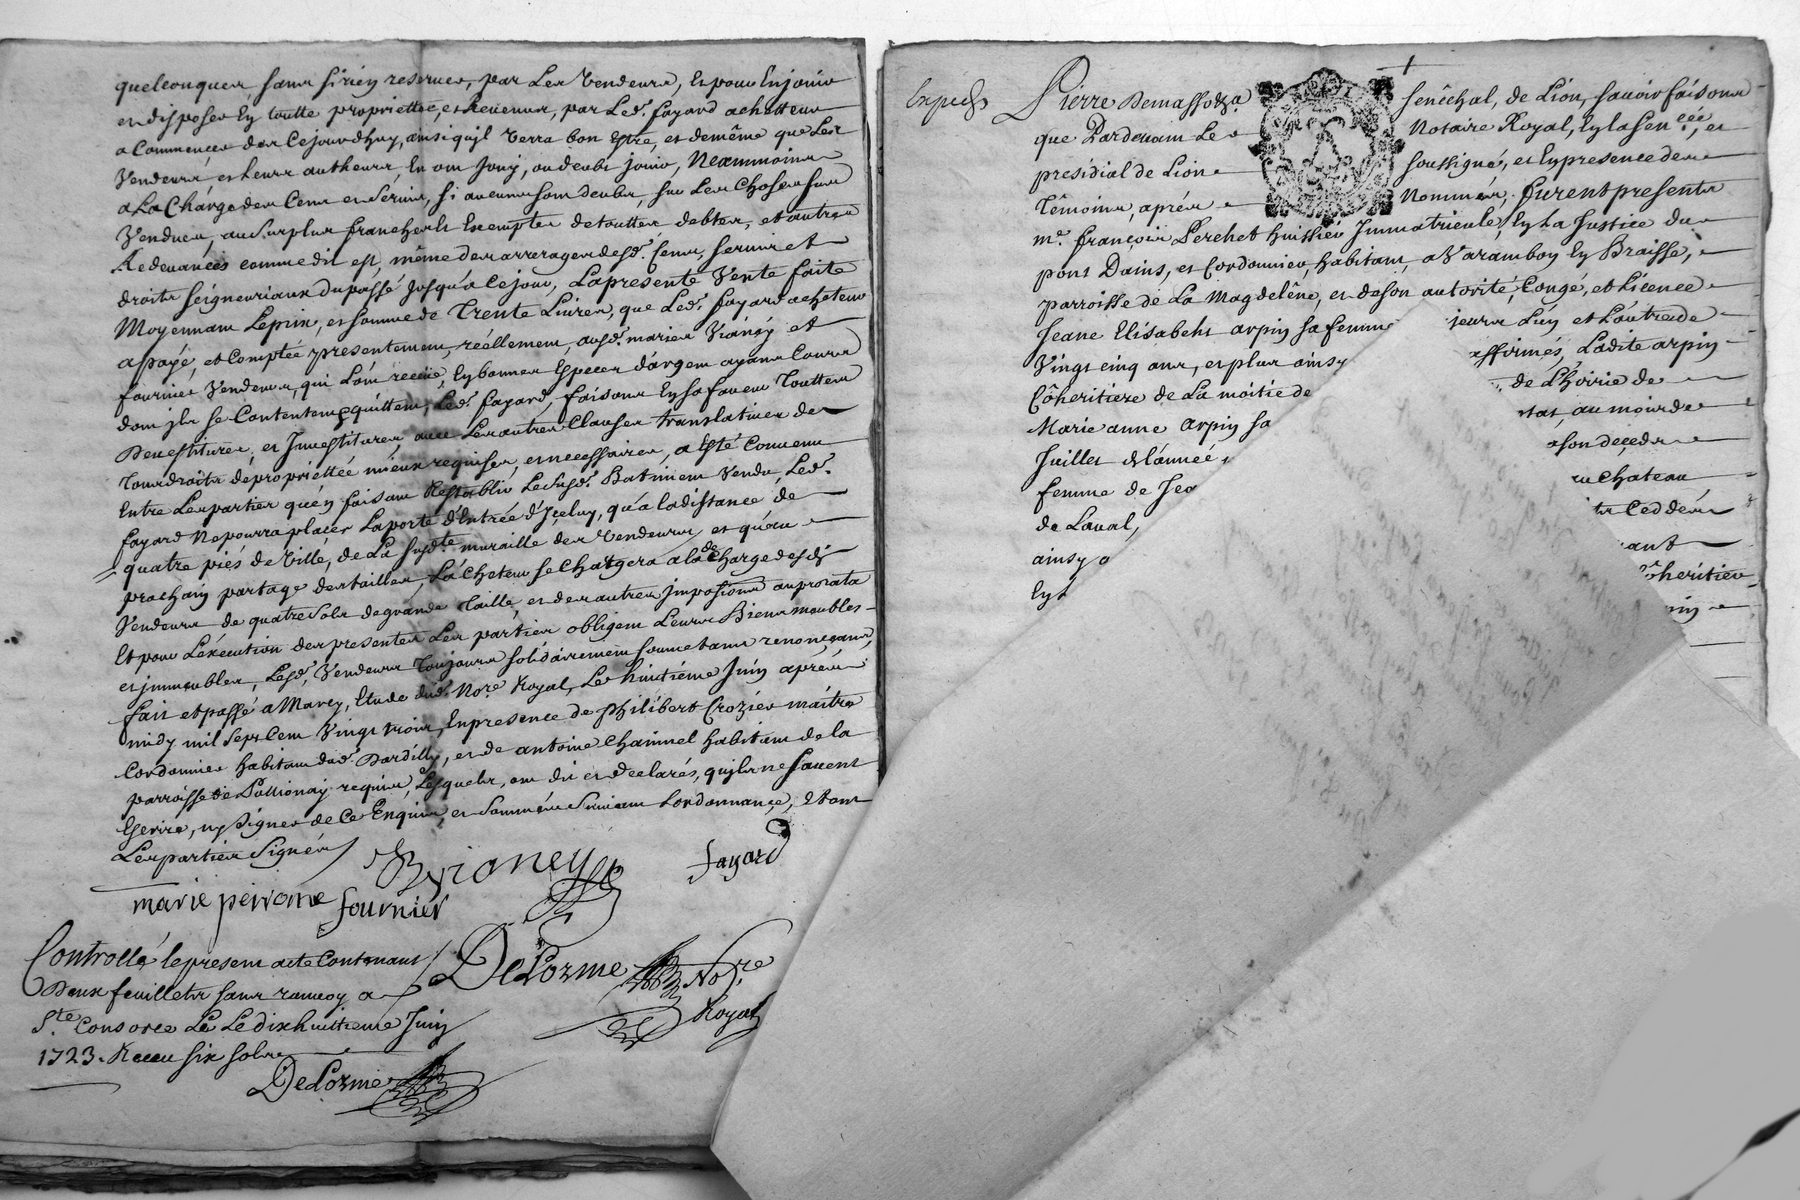 quelconques sans si rien reserver, par Les Vendeurs, Et pour En jouir
en disposer En toutte propriettée, et Revenus, par Led. fayard achetteur
a Commencer des Cejourdhuy, ainsi quil Verra bon Estre, et demême que Les
Vendeurs, et Leurs autheurs, En ont Jouy, ou deub jouir, Neammoins
a La Charge des Cens et Servis, si aucuns sont deubs, sur Les Choses sus
Vendues, au Surplus franches Et Exemptes de touttes debtes, et autres
Redevances comme dit est, même des arrerages desd. Cens, servis et
droits seigneuriaux du passé jusqu'a Ce jour, La presente Vente faite
Moyennant Le prix, et somme de Trente Livres, que Led. fayard acheteur
a payé, et Comptée presentement, réellement, ausd. mariés et
fournier Vendeurs, qui L'ont receüe, En bonnes Especes d'argent ayant Cours
dont ils se Contentent, quittent, Led. fayard, faisant En sa faveur Touttes
Devestitures, et Jnvestitures, avec Les autres Clauses translatives de
Tous droits de propriettée mieux requises, et necessaires, a Esté Convenu
Entre Les parties qu'en faisant Restablir Le susd. Batiment Vendu, Led.
fayard Ne pourra placer La porte d'Entrée d'Jceluy, qu'a la distance de
quatre piés de Ville, de La susdte muraille des Vendeurs, et qu'au
prochain partage des tailles, La Cheteur se Chargera a la de Charge desd.
Vendeurs de quatre Sols de grande Taille, et des autres Jmpositions au prorata
Et pour L'éxécution des presentes Les parties obligent Leurs Biens meubles
et jmmeubles, Lesd. Vendeurs Toujours solidairement soumettans renonçans,
fait et passé a Marcy, Etude dud. Nore. Royal, Le huitiéme Juin aprés
midy mil Sept Cent Vingt trois, En presence de philibert Crozier maitre
Cordonnier habitant dud. Dardilly, et de antoine Chainnel habitant de la
parroisse de Pollionay requis, Lesquels, ont dit et declarés, qu'ils ne savent
Escrire, ny Signer de Ce Enquis, et Sommés Suivant Lordonnance, Et ont
Les parties Signés
fayard
marie perrone fournier
Controllé le present acte Contenant
Deux feuillets sans renvoy a
Ste. Consorce Le dixhuitieme Juin
1723. Receu six sols
DeLorme
DeLorme Nore
Royal
Exped
Pierre Demasso Sénéchal, de Lion, savoir faisons
que Pardevant Le Notaire Royal, En la Sen.ceé, et
présidial de Lion soussigné, et En presence des
Témoins, aprés Nommés, furent presents
me. françois Perchet huissier Jmmatriculé, En La Justice du
pont Dains, et Cordonnier, habitant, a Varambon En Braisse,
parroisse de La Magdelêne, et de son autorité, Congé, et Licence
Jeane Elisabeht arpin sa femme jeurs L'un et L'autre de
Vingt cinq ans, et plus ainsy affirmés, Ladite arpin
Côheritiere de La moitié de de L'hoirie de
Marie anne arpin sa au mois de
Juillet de L'année, a son décédes
femme de Jea Chateau
de Laval,
ainsy
ôheritier